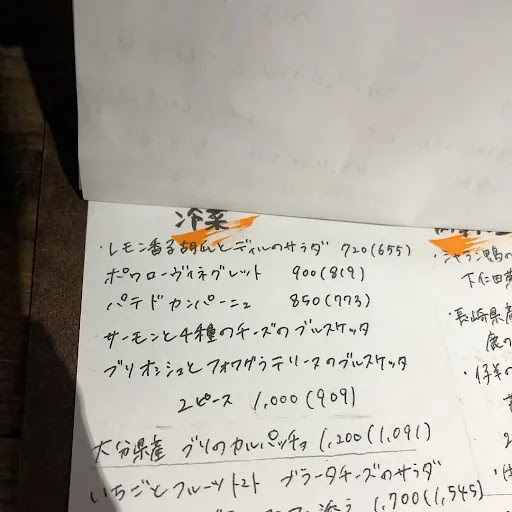 冷菜
・レモン香る胡瓜とディルのサラダ 720(655)
ポワローヴィネグレット 900(819)
パテドカンパーニュ 850(773)
・サーモンと4種のチーズのブルスケッタ
・ブリオッシュとフォワグラテリーヌのブルスケッタ
2ピース 1,000(909)
大分県産 ブリのカルパッチョ 1,200(1,091)
いちごとフルーツトマト ブラータチーズのサラダ
添う 1,700(1,545)
・シャラン鴨の
下仁田
・長崎県産
鹿の
・仔羊の